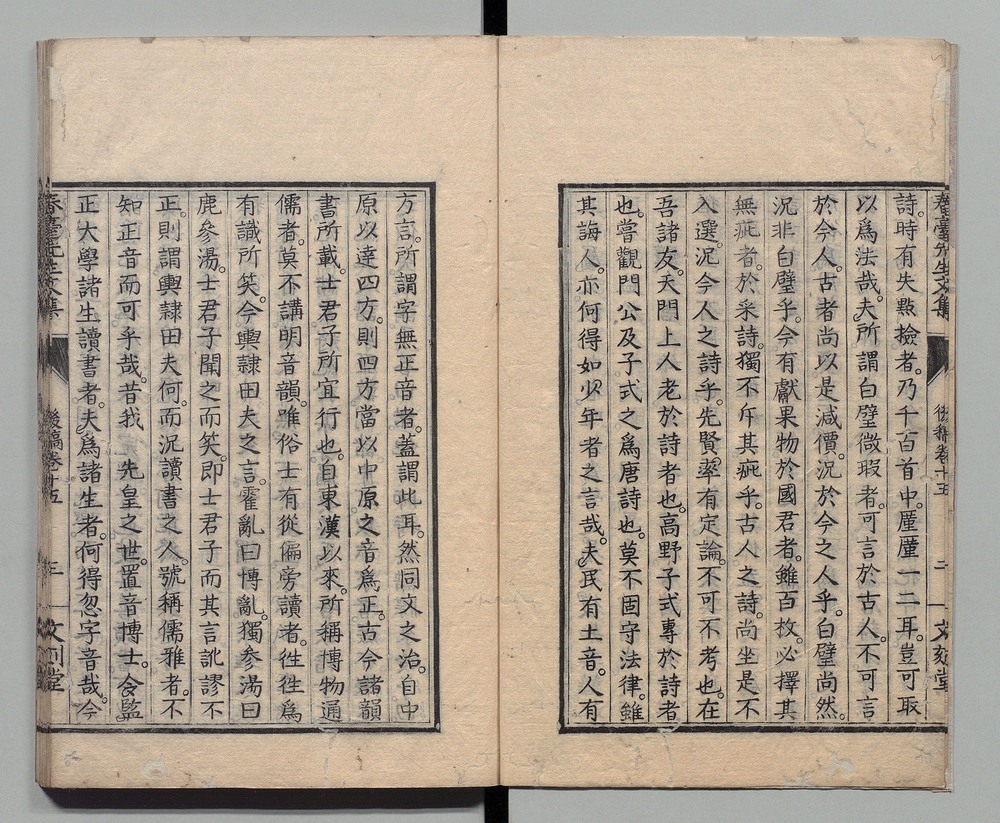 春臺先生文集 後稿卷十五 二 文刻堂
詩。時有失點撿者。乃千百首中。厪厪一二耳。豈可取
以爲法哉。夫所謂白璧微瑕者。可言於古人。不可言
於今人。古者尚以是減價。況於今之人乎。白璧尚然。
況非白璧乎。今有獻果物於國君者。雖百枚。必擇其
無疵者。於采詩。獨不斥其疵乎。古人之詩。尚坐是不
入選。況今人之詩乎。先賢。率有定論。不可不考也。在
吾諸友。天門上人老於詩者也。高野子式專於詩者
也。嘗觀門公及子式之爲唐詩也。莫不固守法律。雖
其誨人。亦何得如少年者之言哉。夫民有土音。人有
方言。所謂字無正音者。蓋謂此耳。然同文之治。自中
原以達四方。則四方當以中原之音爲正。古今諸韻
書所載。士君子所宜行也。自東漢以來。所稱博物通
儒者。莫不講明音韻。唯俗士有從偏旁讀者。徃徃爲
有識所笑。今輿隷田夫之言。霍亂曰博亂。獨參湯曰
鹿參湯。士君子聞之而笑。即士君子而其言訛謬不
正。則謂輿隷田夫何。而況讀書之人。號稱儒雅者。不
知正音而可乎哉。昔我 先皇之世。置音博士。令監
正大學諸生讀書者。夫爲諸生者。何得忽字音哉。今
春臺先生文集 後稿卷十五 三 文刻堂